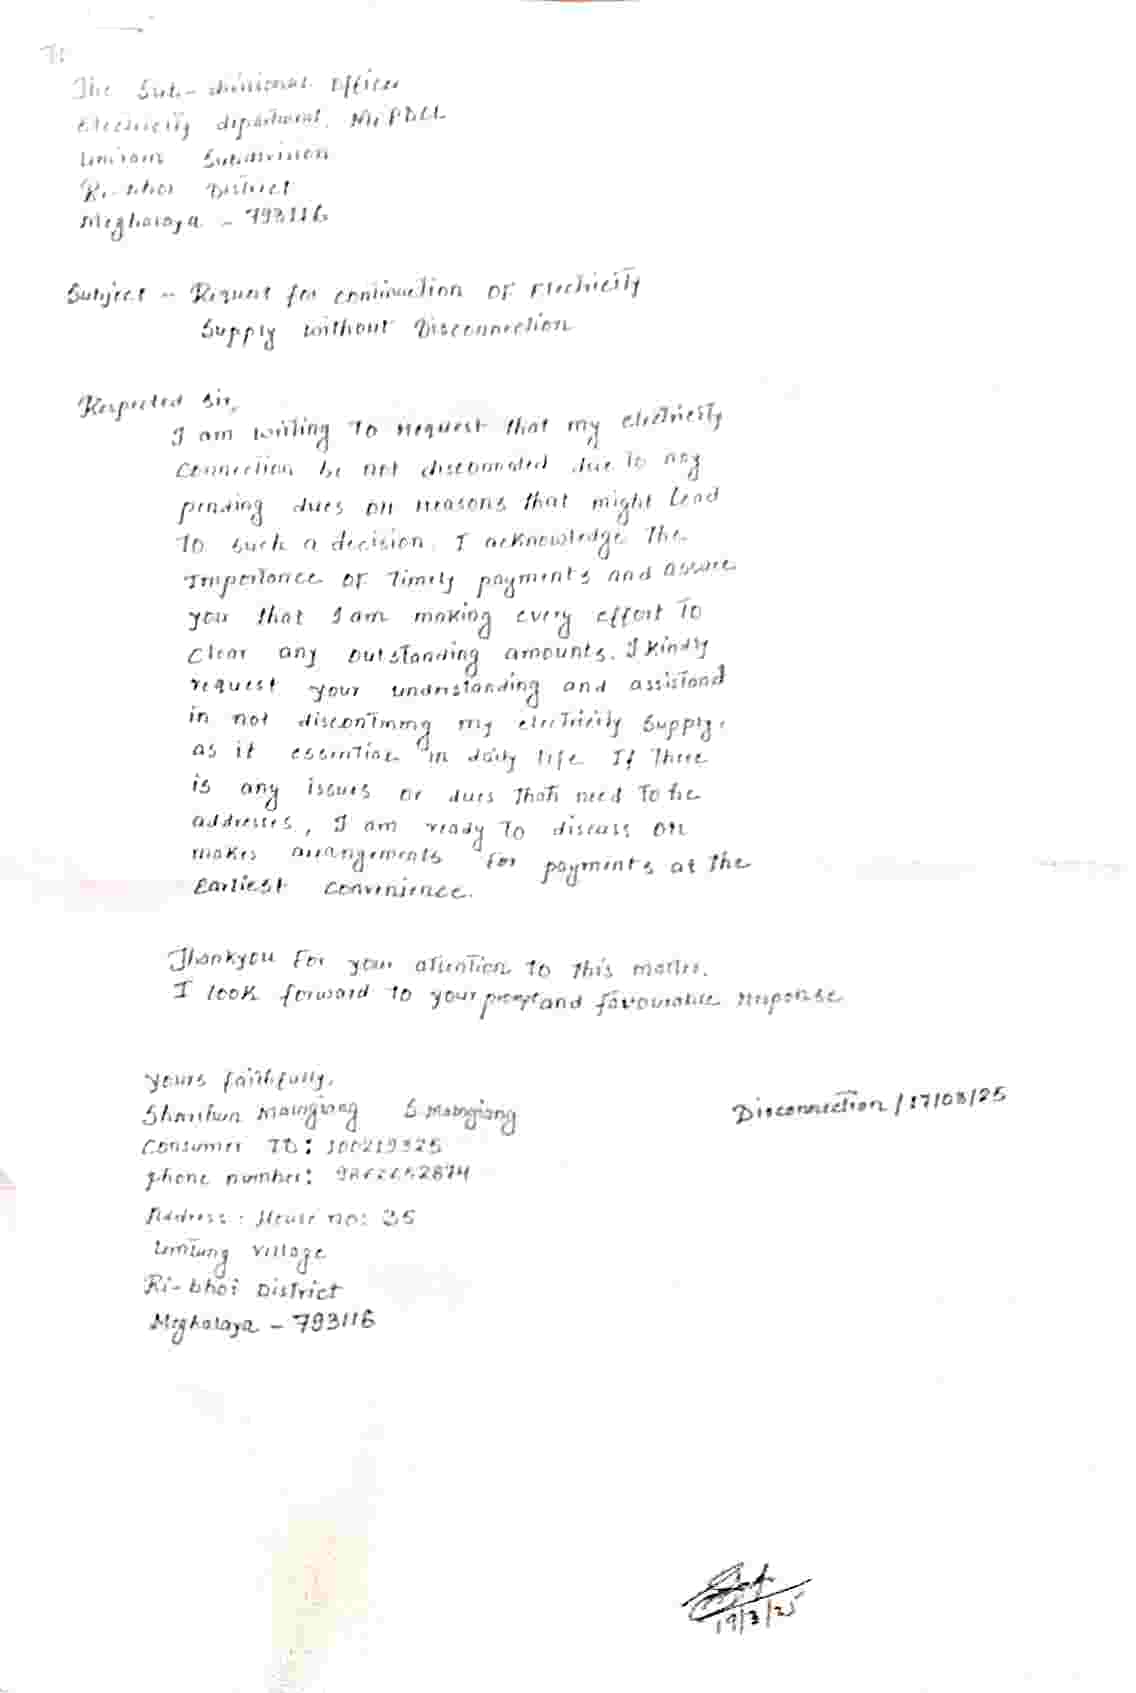 To
The Sub-divisional Officer
Electricity department, MePDCL
Umiam Subdivision
Ri-bhoi District
Meghalaya - 793116
Subject - Request for continuction OF Electricity
Supply without Disconnection
Respected Sir,
I am writing To request that my electricity
Connection be not disconnated due to any
pending dues or reasons that might Lead
To such a decision. I acknowledge The
Importance OF Timely payments and assure
you that I am making every effort To
Clear any outstanding amounts. I kindly
request your understanding and assistand
in not discontinung my electricity supply.
as it essential in daily life If There
is any issues or dues that need To be
addresses, I am ready To discuss or
makes arrangements For payments at The
Earliest convenience.
Thankyou For your attention to this matter.
I look forward to your prompt and favourable response
Yours faithfully,
Shanbun Mawgiang S. Mawgiang
Consumer ID: 100219325
Phone number: 9862652874
Address: House no: 35
Umtung Village
Ri-bhoi District
Meghalaya - 793116
Disconnection / 17/03/25
19/3/25